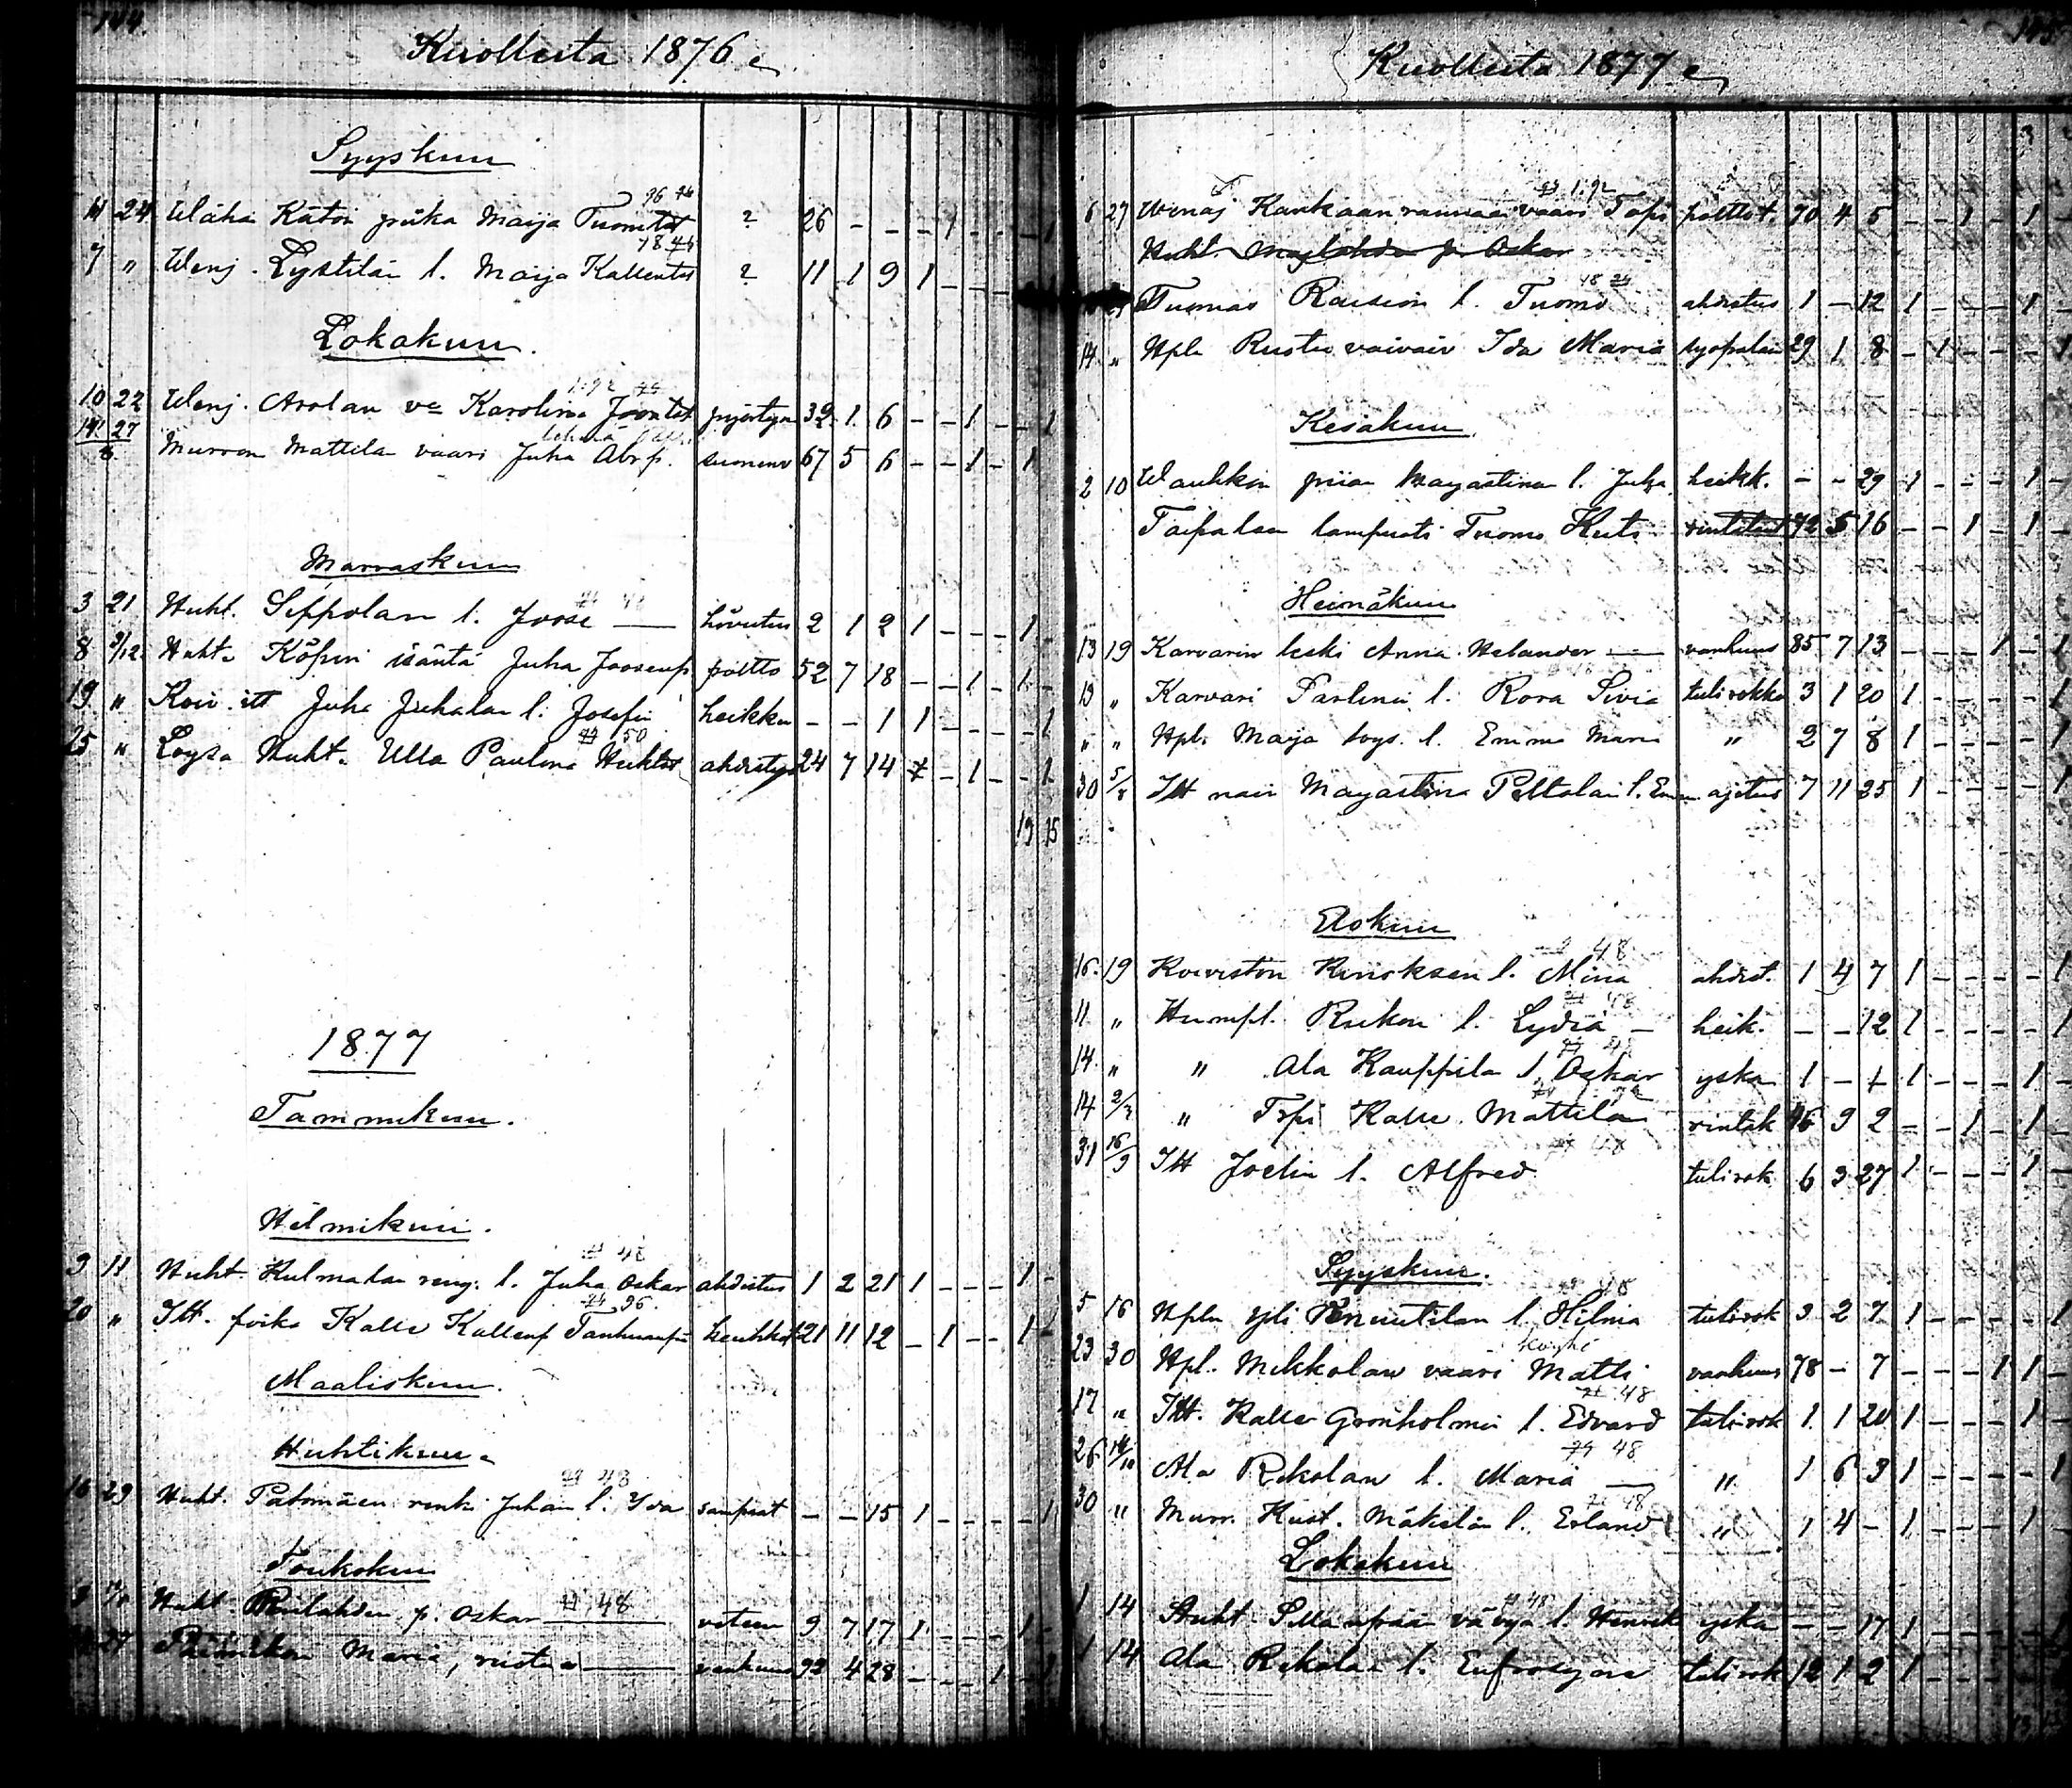 144.
Kuolleita 1876
Syyskuu
96 44
11 24 Wähä Kätön piika Maija Tuomtär ? 26 - - - 1 - - - 1
48 44
7 " Wenj. Lystilän l. Maija Kallentär ? 11 1 9 1 - - -
Lokakuu.
10 22 Wenj. Arolan va Karolina Joontär 39 1 6 - - 1 - - 1
27 Murron Mattilan vaari Juha Abr.p. 67 5 6 - - 1 - 1
Marraskuu
3 21 Huht. Seppolan l. Joose — hövutus 2 1 2 1 - - - 1 -
8 3/12 Huht. Köpin isäntä Juha Joosenp. poltto 52 7 18 - - 1 - 1 -
19 " Koiv. itt Juha Juhalan l. Josefin heikko - - 1 1 - - - 1
44 50
25 " Loysä Huht. Ulla Paulina ahdistus 24 7 14 - 1 - - 1
19 15
1877
Tammikuu.
Helmikuu.
48
9 11 Huht. Kulmalan reng. l. Juha Oskar ahdistus 1 2 21 1 - - - 1 -
44 96.
20 " Itt. poika Kalle Kallenp 21 11 12 - 1 - - 1 -
Maaliskuu.
Huhtikuu
48
16 29 Huht. Patomäen renki Juhan l. Ida - - 15 1 - - - - 1
Toukokuu
44 48
9 Huht. p. Oskar — 9 7 17 1 - - - 1 -
27 Maria, vanhuus 93 4 28 - - - 1 - 1
145
Kuolleita 1877
1.92
6 27 Wenäj Kankaanrannan vaari Topi polttot. 70 4 5 - - 1 - 1 -
Huht. p. Oskar
48
Tuomas Raision l. Tuomo ahdistus 1 - 12 1 - - - 1 -
14 " Hpl. Rustu vaivain Ida Maria syöpalain 29 1 8 - 1 - - - 1
Kesäkuu
2 10 Wauhkon piian Magastinan l. Juha heikk. - - 29 1 - - - 1 -
Taipaleen lampuoti Tuomo 72 5 16 - - 1 - 1 -
Heinäkuu
13 19 Karvarin leski Anna Helander — vanhuus 85 7 13 - - - 1 - 1
13 " Karvari l. Rosa Sivia tulirokko 3 1 20 1 - - - - 1
" " Hpl. Maija loys. l. Emma Maria " 2 7 8 1 - - - - 1
30 5/8 Itt nain Magastina Peltolain l. Em ajetus 7 11 25 1 - - - - 1
Elokuu
48
16. 19 Koiviston l. Mina ahdist. 1 4 7 1 - - - - 1
48
11 " Humpl. l. Lydia — heik. - - 12 1 - - - - 1
48
14. " " Ala Kauppila l. Oskar yskä 1 - 1 1 - - - 1 -
14 " Topi Kalle Mattila rintak 46 9 2 - - 1 - 1 -
48
31 16/9 Itt Joelin l. Alfred tulirok 6 3 27 1 - - - 1 -
Syyskuu.
48
5 16 Hpln yli Penuntilan l. Hilma tulirok 3 2 7 1 - - - - 1
köyhä
23 30 Hpl. Mikkolan vaari Matti vanhuus 78 - 7 - - - 1 1 -
48
17 " Itt. Kalle Grönholmin l. Edvard tulirok 1. 1 20 1 - - - 1 -
48
26 14/10 Ala Rekolan l. Maria — " 1 6 3 1 - - - - 1
48
30 " Murr. Kust. Mäkelän l. Erland " 1 4 - 1 - - - 1 -
Lokakuu
48
1 14 Huht Sillanpään vävyn l. Henrik yskä - - 17 1 - - - 1
1 14 Ala Rekolan l. Eufrosyne tulirok 12 1 2 1 - - - 1